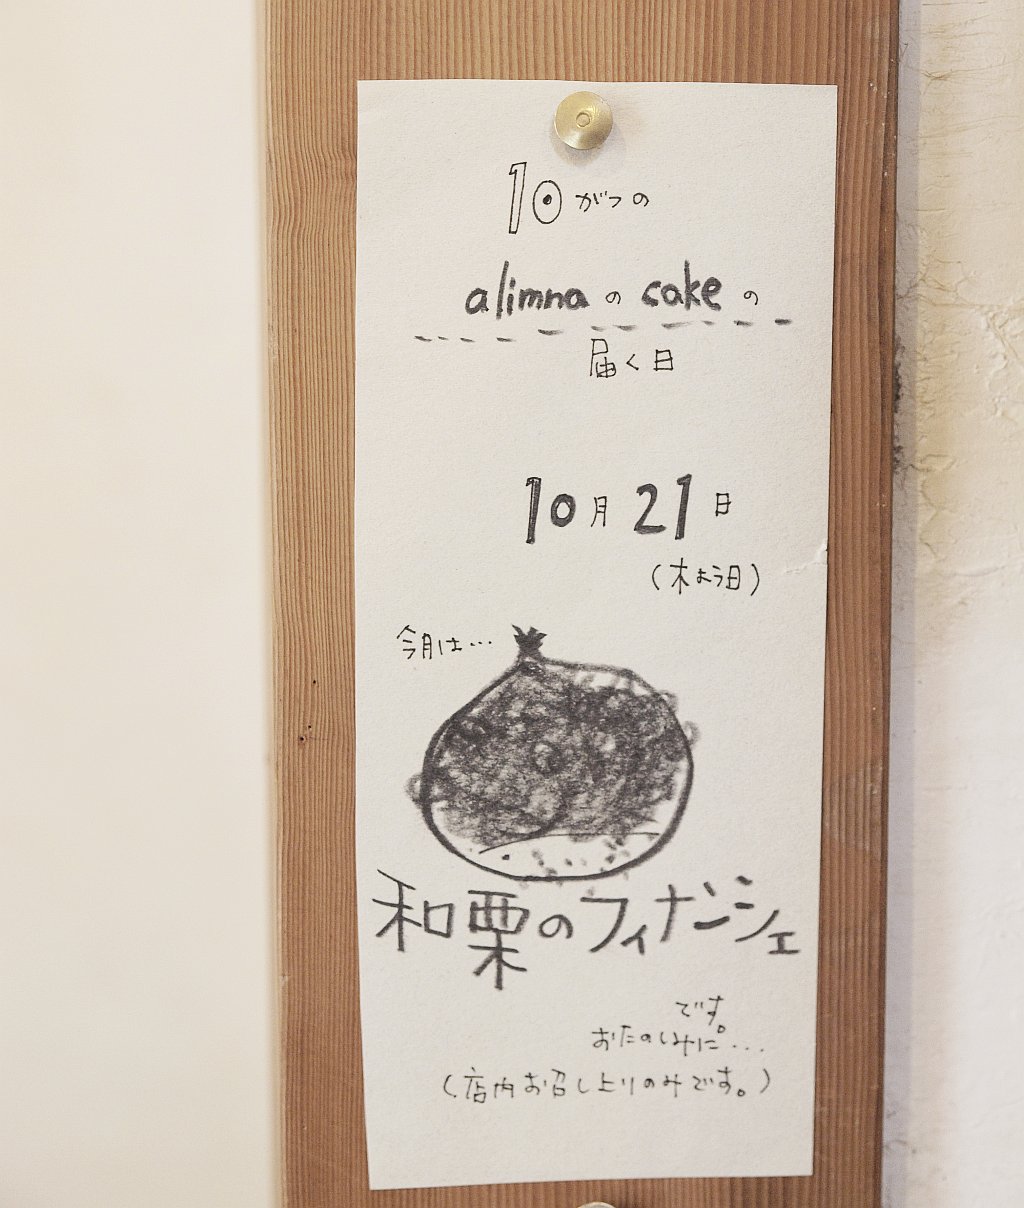 10がつの
alimnaのcakeの
届く日
10月21日
(木よう日)
今月は...
和栗のフィナンシェ
です。
おたのしみに...
(店内お召し上りのみです。)